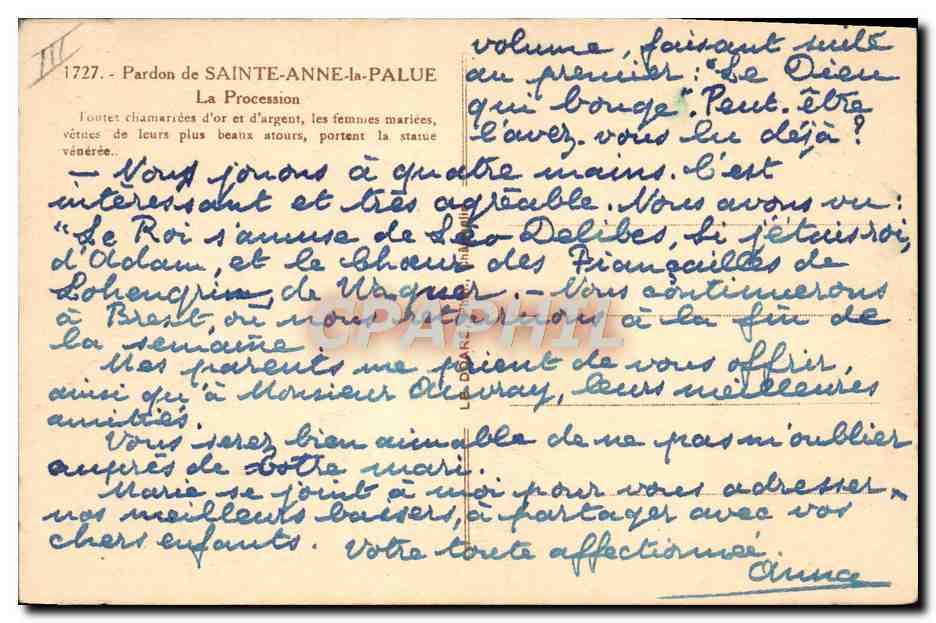 III
1727. - Pardon de SAINTE-ANNE-la-PALUE
La Procession
Toutes chamarrées d'or et d'argent, les femmes mariées,
vêtues de leurs plus beaux atours, portent la statue
vénérée..
volume, faisant suite
au premier : "Le Dieu
qui bouge". Peut-être
l'avez-vous lu déjà ?
- Nous jouons à quatre mains. C'est
intéressant et très agréable. Nous avons vu :
"Le Roi s'amuse de Léo Delibes, Si j'étais roi,
d'Adam, et le Chœur des Fiançailles de
Lohengrin, de Wagner. - Nous continuerons
à Brest, où nous retournons à la fin de
la semaine.
Mes parents me prient de vous offrir,
ainsi qu'à Monsieur Auvray, leurs meilleures
amitiés.
Vous serez bien aimable de ne pas m'oublier
auprès de votre mari.
Marie se joint à moi pour vous adresser,
nos meilleurs baisers, à partager avec vos
chers enfants. Votre toute affectionnée.
Anna
CPAPHIL